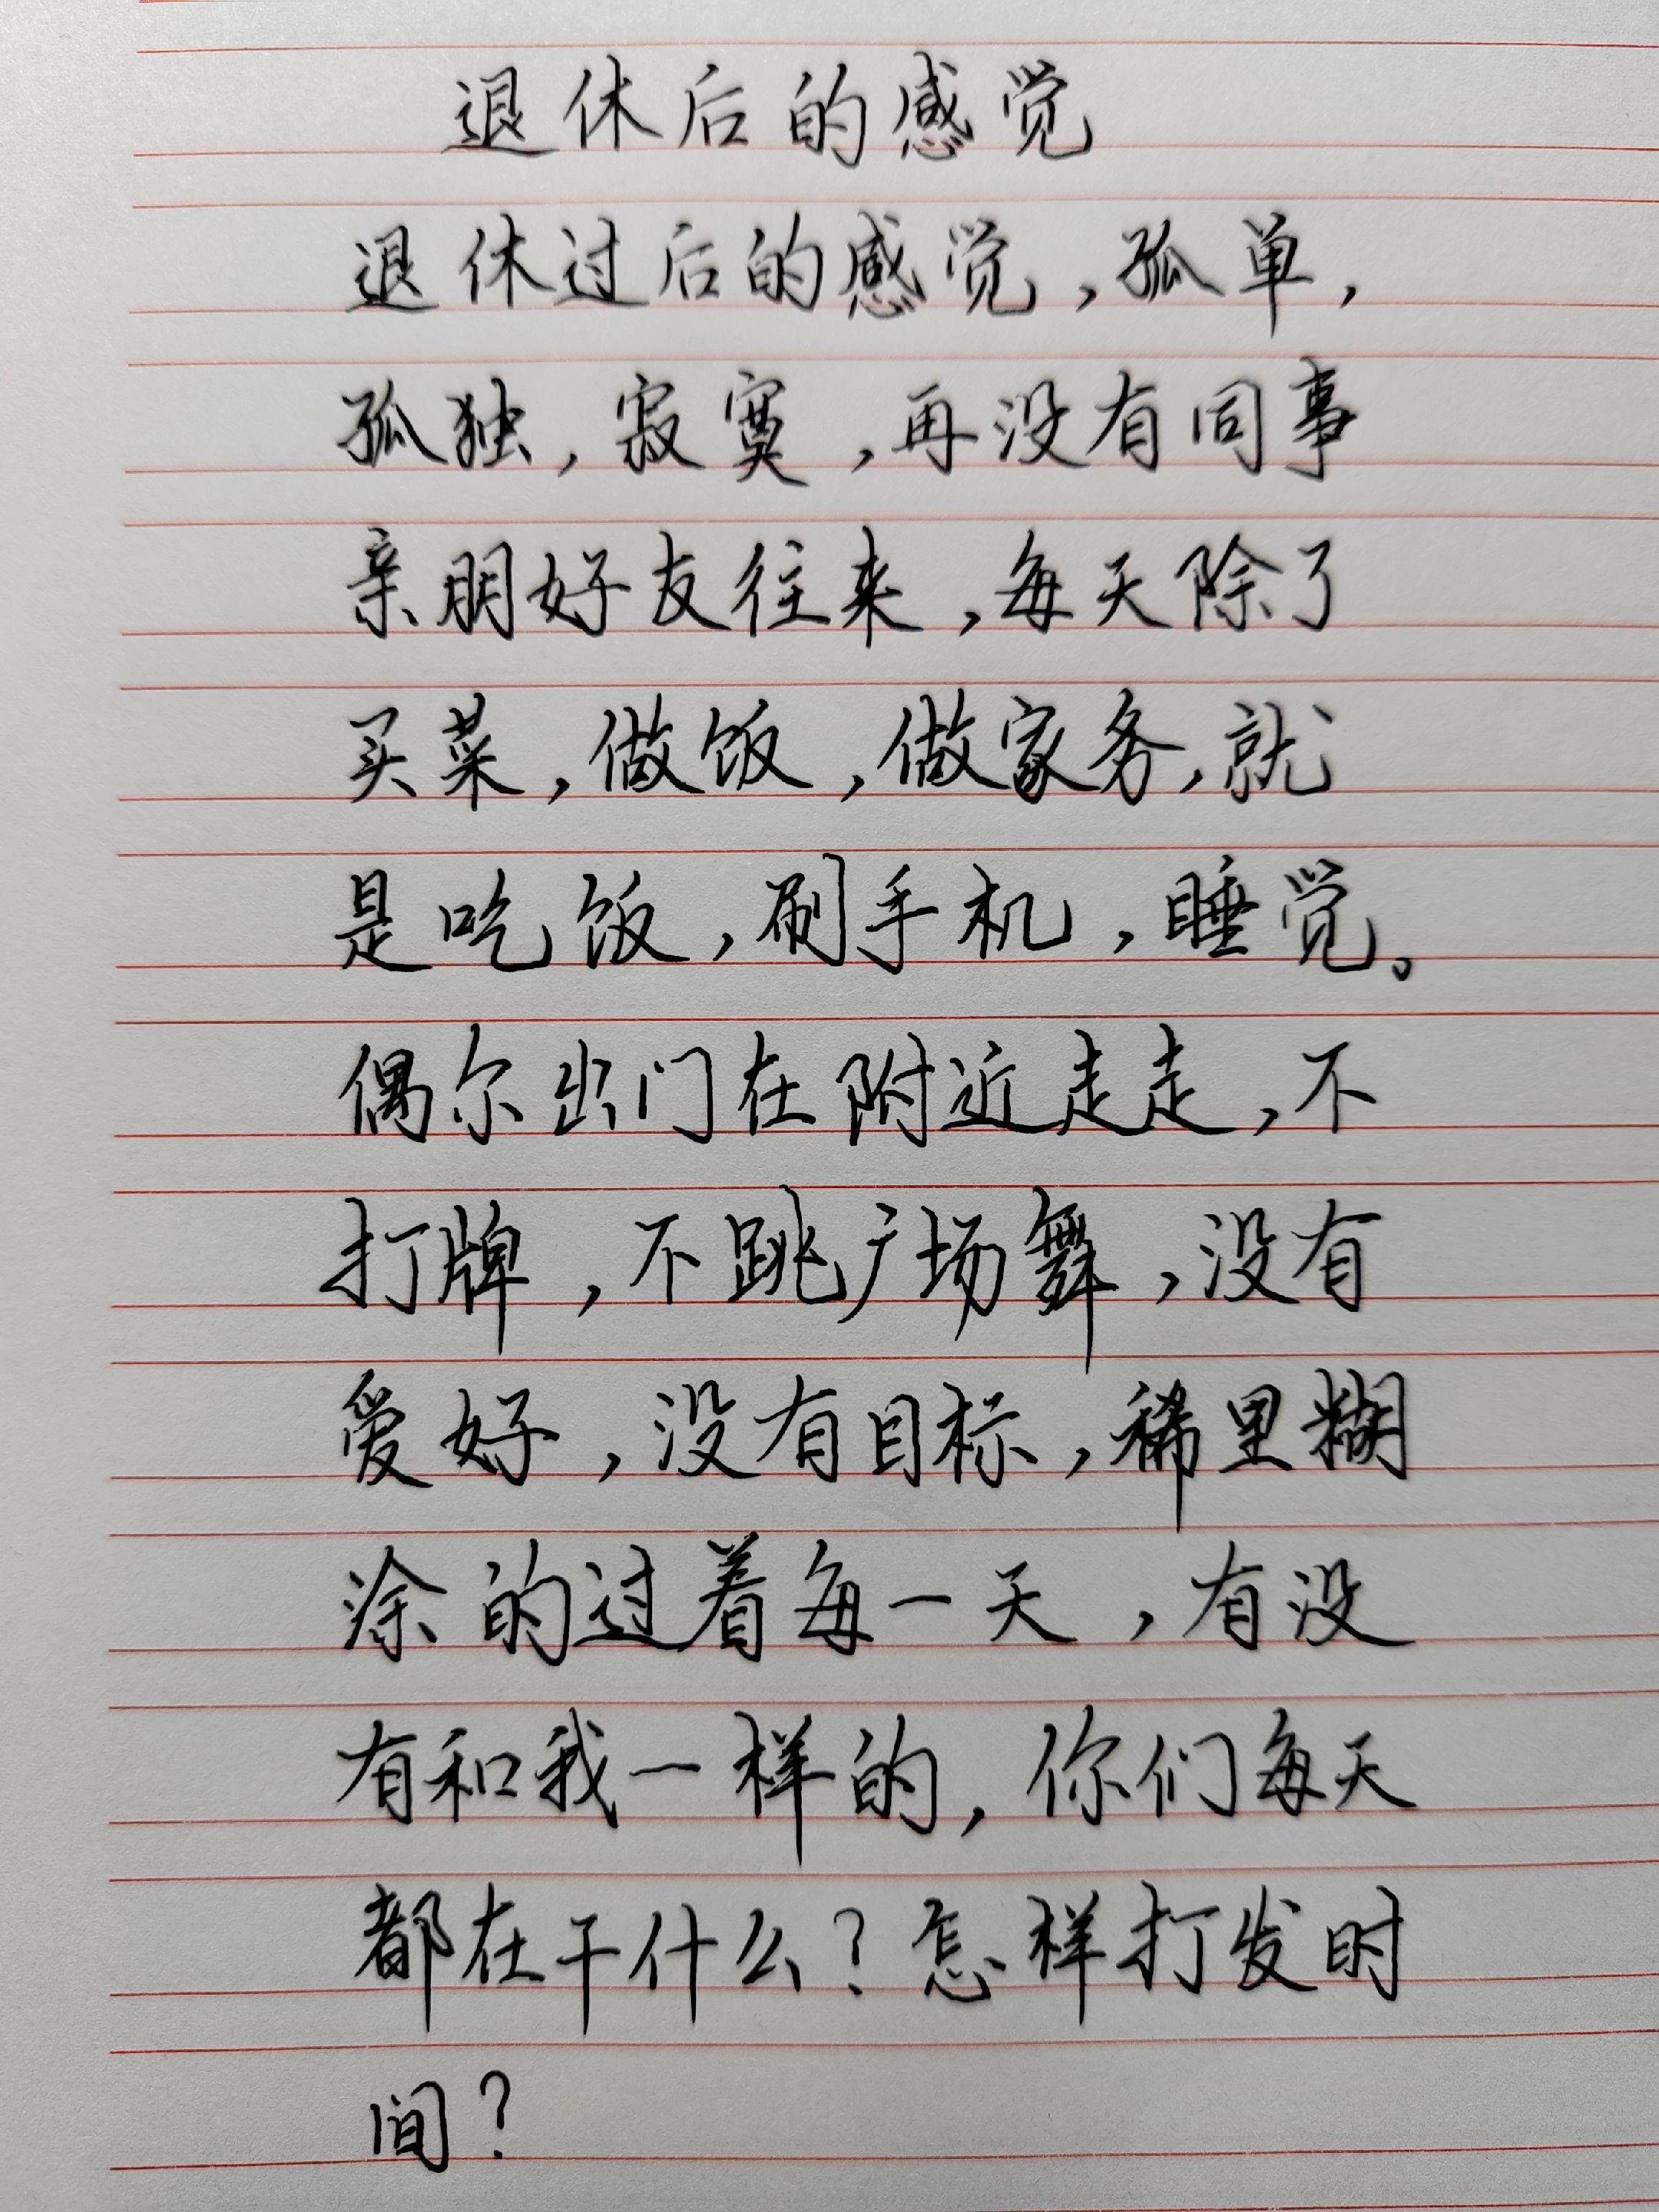 退休后的感觉
退休过后的感觉，孤单，
孤独，寂寞，再没有同事
亲朋好友往来，每天除了
买菜，做饭，做家务，就
是吃饭，刷手机，睡觉。
偶尔出门在附近走走，不
打牌，不跳广场舞，没有
爱好，没有目标，稀里糊
涂的过着每一天，有没
有和我一样的，你们每天
都在干什么？怎样打发时
间？